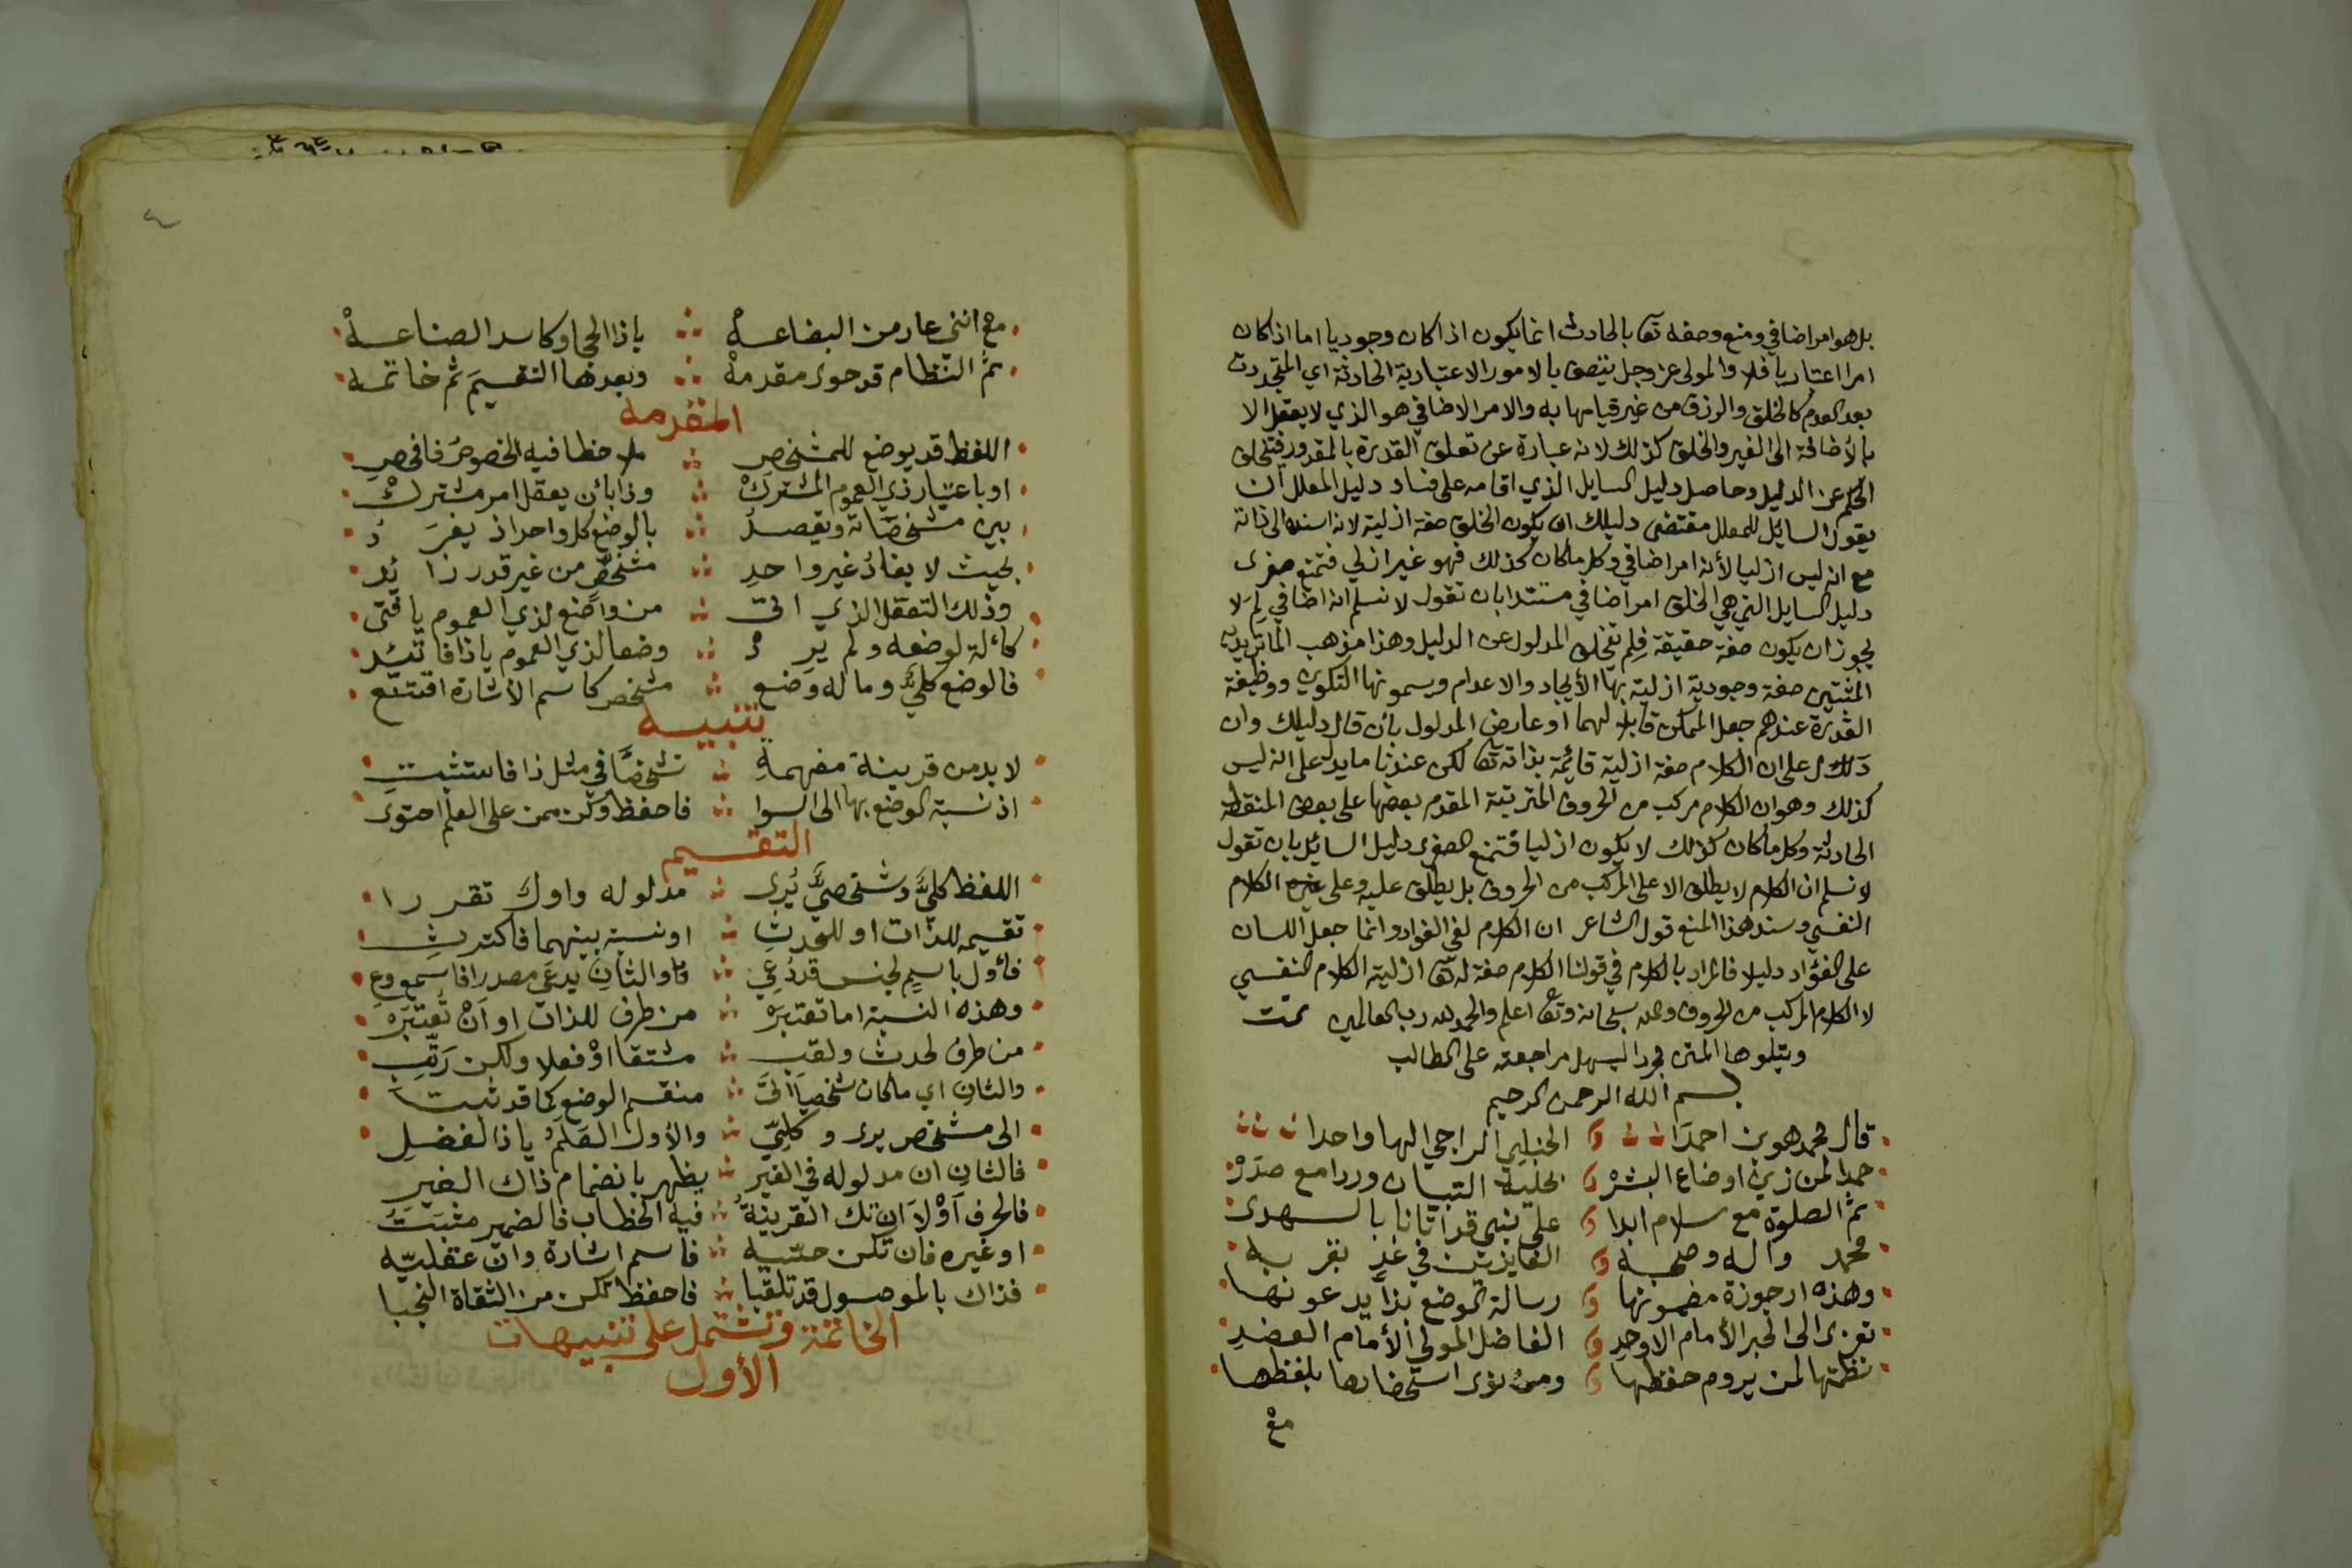 بل هو امر اضافي ومنع وصفه تعا بالحادث انما يكون اذا كان وجوديا اما اذا كان
امرا اعتباريا فلا والمولى عز وجل يتصف بالامور الاعتبارية الحادثة اي المتجددت
بعد العدم كالخلق والرزق من غير قيامها به والامر الاضافي هو الذي لا يعقل الا
بالأضافة الى الغير والخلق كذلك لانه عبارة عن تعلق القدرة بالمقدور فتخلق
الحكم عن الدليل وحاصل دليل السايل الذي اقامه على فساد دليل المعلل ان
يقول السايل للمعلل مقتضى دليلك ان يكون الخلق صفة ازلية لانه اسنده الى ذاته
مع انه ليس ازليا لأنه امر اضافي وكل ما كان كذلك فهو غير ازلي فتمنع صغرى
دليل السايل التي هي الخلق امر اضافي مستندا بان تقول لا نسلم انه اضافي لِمَ لا
يجوز ان يكون صفة حقيقة فلم تخلق المدلول عن الدليل وهذا مذهب الماتريديه
المثبتين صفة وجودية ازلية بها الأيجاد والاعدام ويسمونها التكوين ووظيفة
القدرة عندهم جعل الممكن قابلا لهما او عارض المدلول بأن قال دليلك وان
دل على ان الكلام صفة ازلية قائمة بذاته تعا لكن عندنا ما يدل على انه ليس
كذلك وهو ان الكلام مركب من الحروف المترتبة المقدم بعضها على بعض المنقطه
الحادثة وكل ما كان كذلك لا يكون ازليا فتمنع الصغرى دليل السائل بان تقول
لا نسلم ان الكلام لا يطلق الا على المركب من الحروف بل يطلق عليه وعلى غيره الكلام
النفسي وسند هذا المنع قول الشاعر ان الكلام لفي الفواد وانما جعل اللسان
على الفؤاد دليلا فالمراد بالكلام في قولنا الكلام صفة له تعا ازلية الكلام النفسي
لا الكلام المركب من الحروف والله سبحانه وتعا اعلم والحمد لله رب العالمين تمت
ويتلوها المتن مجردا ليسهل مراجعته على الطالب
بسم الله الرحمن الرحيم
قال محمد هو بن احمدا الحنبلي الراجي الها واحدا
حمدا لمن زين اوضاع البشر بحلية التبيان وردا مع صدر
ثم الصلوة مع سلام ابدا على نبي قد اتانا بالهدى
محمد واله وصحبه الفايزين في غد بقربه
وهذه ارجوزة مضمونها رسالة الموضع بذا يدعونها
تعزى الى الحبر الأمام الاوحد الفاضل المولى الأمام العضد
نظمتها لمن يروم حفظها ومن نوى استحضارها بلفظها
مع
مع انني عار من البضاعة ياذا الحجا وكاسد الصناعة
ثم النظام قد حوى مقدمة وبعدها التقسيم ثم خاتمه
المقدمه
اللفظ قد يوضع للمشخص ملاحظا فيه الخصوص فافحص
او باعتبار ذي العموم المشترك وذا بأن يعقل امر مشترك
بين مشخصاته ويقصد بالوضع كل واحد اذ يفرد
بحيث لا يفاد غير واحد مشخص من غير قدر زايد
وذلك التعقل الذي اتى من واضع لذي العموم يا فتى
كالة لوضعه ولم يرد وضعا لذي العموم ياذا فاتئد
فالوضع كلي وما له وضع مشخص كاسم الأشارة اقتنع
تنبيه
لا بد من قرينة مفهمة تشخصا في مثل ذا فاستثبت
اذ نسبة الوضع بها الى السوا فاحفظ وكن ممن على العلم احتوى
التقسيم
اللفظ كلي وشخصي يرى مدلوله واول تقررا
تقسيمه للذات او للحدث او نسبة بينهما فاكترث
فأول باسم لجنس قد دعي والثان يدعى مصدرا فاسمع وع
وهذه النسبة اما تعتبره من طرف للذات او ان تعتبره
من طرف لحدث ولقب مشتقا او فعلا ولكن رتب
والثان اي ما كان شخصيا اتى منقسم الوضع كما قد ثبتا
الى مشخص يرى وكلي والأول العلم ياذا الفضل
فالثان ان مدلوله في الغير يظهر بانضمام ذاك الغير
فالحرف اولا ان تك القرينة فيه الخطاب فالضمير مثبت
او غيره فان تكن حسيه فاسم اشارة وان عقليه
فذاك بالموصول قد تلقبا فاحفظ تكن من الثقاة النجبا
الخاتمة وتشتمل على تنبيهات
الأول